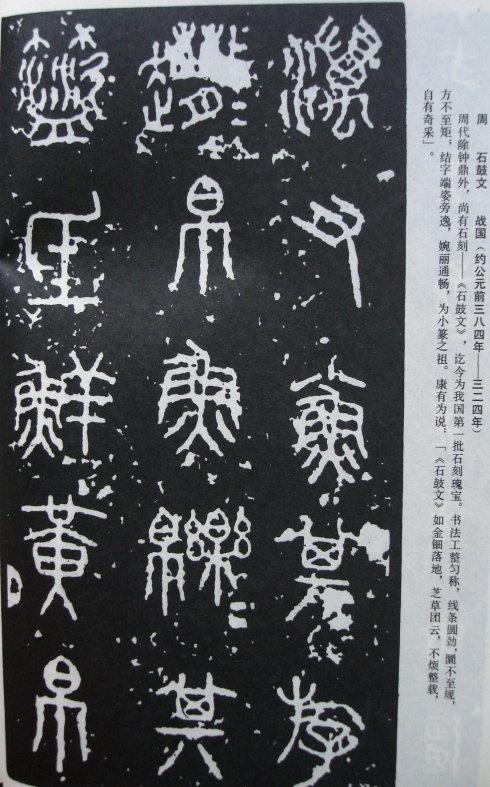 周　石鼓文　战国（约公元前三八四年——三二四年）
周代除钟鼎外，尚有石刻——《石鼓文》，迄今为我国第一批石刻瑰宝。书法工整匀称，线条圆劲，圜不至规，
方不至矩；结字端姿旁逸，婉丽通畅，为小篆之祖。康有为说：「《石鼓文》如金钿落地，芝草团云，不烦整裁，
自有奇采」。
澫又小魚其斿
帛魚皪其
氐鮮黃帛